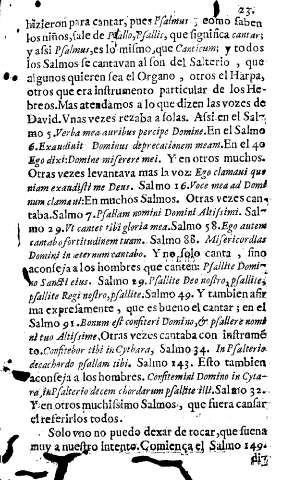 23.
hizieron para cantar, pues Psalmus, como saben
los niños, sale de Psallo, Psallis, que significa cantar;
y assi Psalmus, es lo mismo, que Canticum; y todos
los Salmos se cantavan al son del Salterio, que
algunos quieren sea el Organo, otros el Harpa,
otros que era instrumento particular de los He-
breos. Mas atendamos a lo que dizen las vozes de
David. Vnas vezes rezaba a solas. Assi en el Sal-
mo 5. Verba mea auribus percipe Domine. En el Salmo
6. Exaudivit Dominus deprecationem meam. En el 40
Ego dixi: Domine miserere mei. Y en otros muchos.
Otras vezes levantava mas la voz: Ego clamavi quo
niam exaudisti me Deus. Salmo 16. Voce mea ad Domi
num clamavi: En muchos Salmos. Otras vezes can-
taba. Salmo 7. Psallam nomini Domini Altissimi. Sal-
mo 29. Vt cantet tibi gloria mea. Salmo 58. Ego autem
cantabo fortitudinem tuam. Salmo 88. Misericordias
Domini in æternum cantabo. Y no solo canta, sino
aconseja a los hombres que canten: Psallite Domi-
no Sancti eius. Salmo 29. Psallite Deo nostro, psallite,
psallite Regi nostro, psallite. Salmo 49. Y tambien afir
ma expresamente, que es bueno el cantar; en el
Salmo 91. Bonum est confiteri Domino, & psallere nomi
ni tuo Altissime. Otras vezes cantaba con instrumē
to. Confitebor tibi in Cythara, Salmo 34. In Psalterio
decachordo psallam tibi. Salmo 143. Esto tambien
aconseja a los hombres. Confitemini Domino in Cyta-
ra, in Psalterio decem chordarum psallite illi. Salmo 32.
Y en otros muchissimo Salmos, que fuera cansar
el referirlos todos.
Solo vno no puedo dexar de tocar, que suena
muy a nuestro intento. Comiença el Salmo 149.
di-